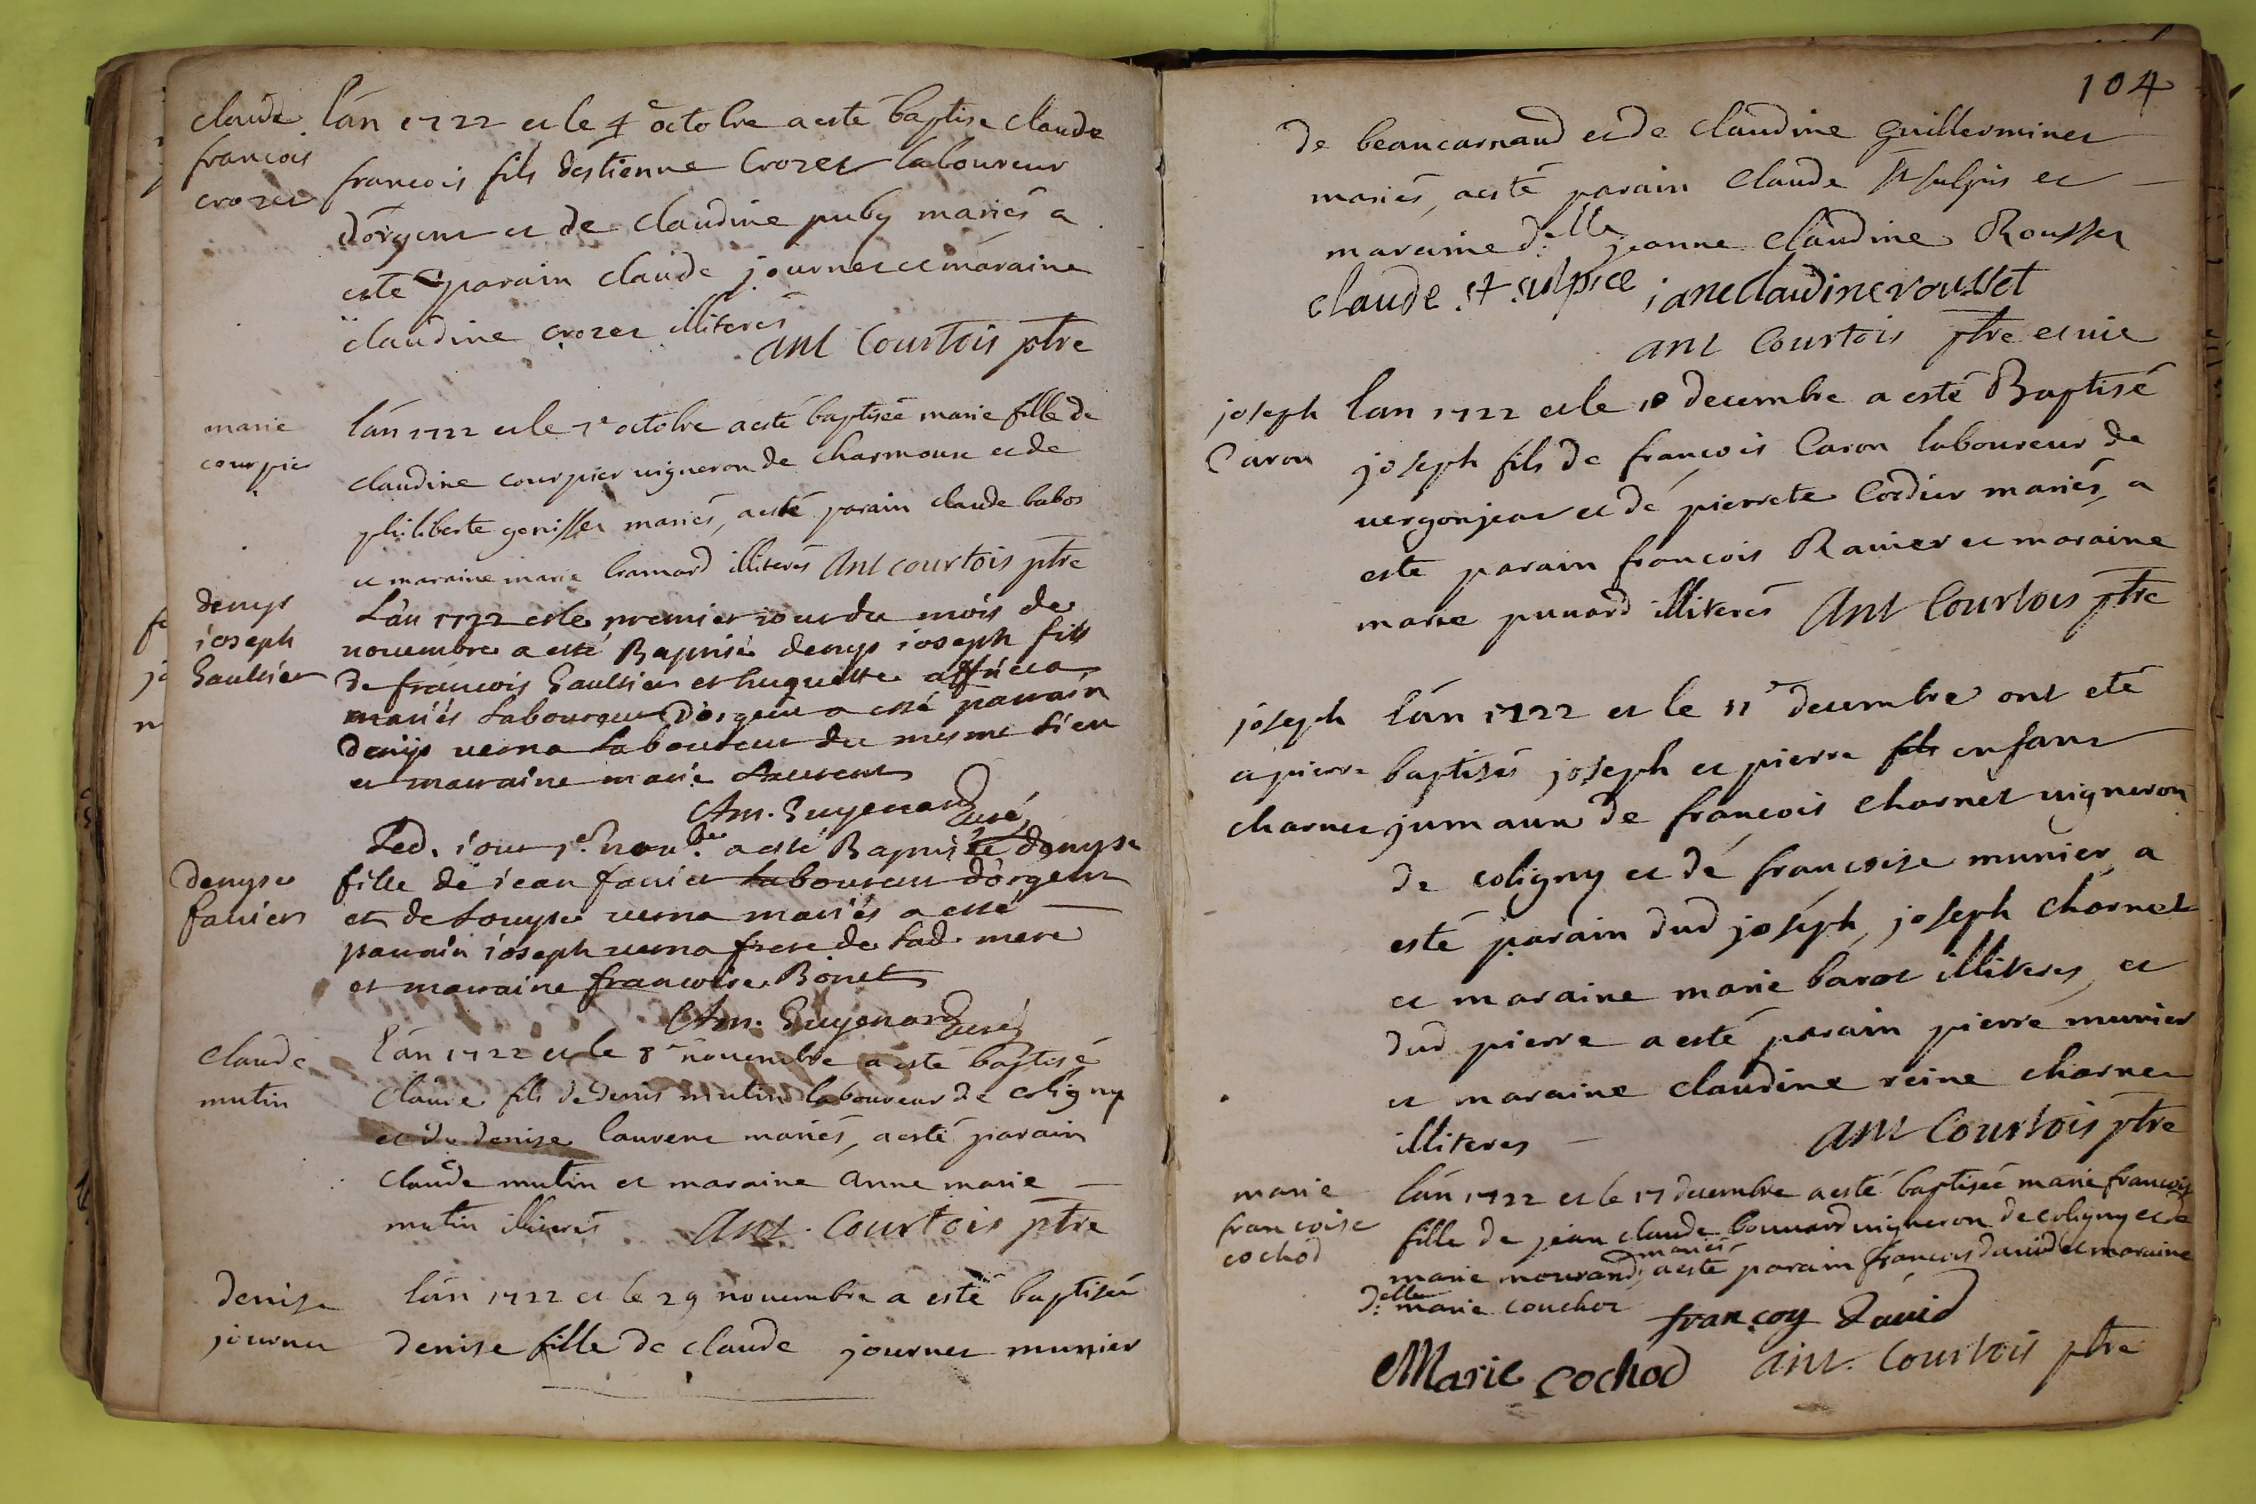 claude
francois
crozet
l'án 1722 et le 4e octobre a esté baptisé claude
francois fils destienne Crozet laboureur
d'orgent et de claudine puby mariés a
esté parain claude journet et maraine
claudine crozet illiterés
Ant Courtois ptre
marie
courpier
l'án 1722 et le 7e octobre a esté baptiseé marie fille de
claudine courpier uigneron de charmoux et de
philiberte genisset mariés, a esté parain claude babos
et maraine marie bramard illiterés Ant courtois ptre
denys
ioseph
Gaultier
L'án 1722 et le premier iour du mois de
nouembre a esté Baptisé denys ioseph fils
de francois Gaultier et huguette
mariés Laboureur d'orgent a esté parrain
denys uerna Laboureur du mesme Lieu
et marraine marie Laurent
Am. Guyenard curé
denyse
fauier
Led. iour 1e. nou.bre a esté Baptisée denyse
fille de iean fauier Laboureur d'orgent
et de Louyse uerna mariés a esté
parrain ioseph uerna frere de Lad. mere
et marraine francoise Bonet
Am. Guyenard curé
claude
mutin
l'án 1722 et le 8e nouembre a esté baptisé
claude fils de Denis mutin laboureur de coligny
et de denise laurent mariés, a esté parain
claude mutin et maraine anne marie
mutin illiterés Ant. Courtois ptre
denise
journet
l'án 1722 et le 29 nouembre a esté baptiseé
denise fille de claude journet munier
104
de beaucarnaud et de claudine guillerminet
mariés, a esté parain claude St sulpis et
maraine d:lle jeanne claudine Rousset
claude st sulpice ianeclaudinerousset
Ant Courtois ptre et uic
joseph
Caron
l'an 1722 et le 10 decembre a esté Baptisé
joseph fils de françois Caron laboureur de
uergonjeat et de pierrete Cordier mariés, a
esté parain francois Rauier et maraine
marie puuard illiterés Ant Courtois ptre
joseph
et pierre
charnet
l'án 1722 et le 11e decembre ont eté
baptisés joseph et pierre fils enfant
jumaun de françois charnet uigneron
de coligny et de françoise munier, a
esté parain dud joseph, joseph charnet
et maraine marie barot illiteres, et
dud pierre a esté parain pierre munier
et maraine claudine reine charnet
illiteres Ant Courtois ptre
marie
francoise
cochod
l'án 1722 et le 17 decembre a esté baptiseé marie francoise
fille de jean claude bouuard uigneron de coligny et de
marie mourand, mariés a esté parain francois dauid et maraine
d:elle marie couchot françoy Dauid
Marie cochod Ant. Courtois ptre